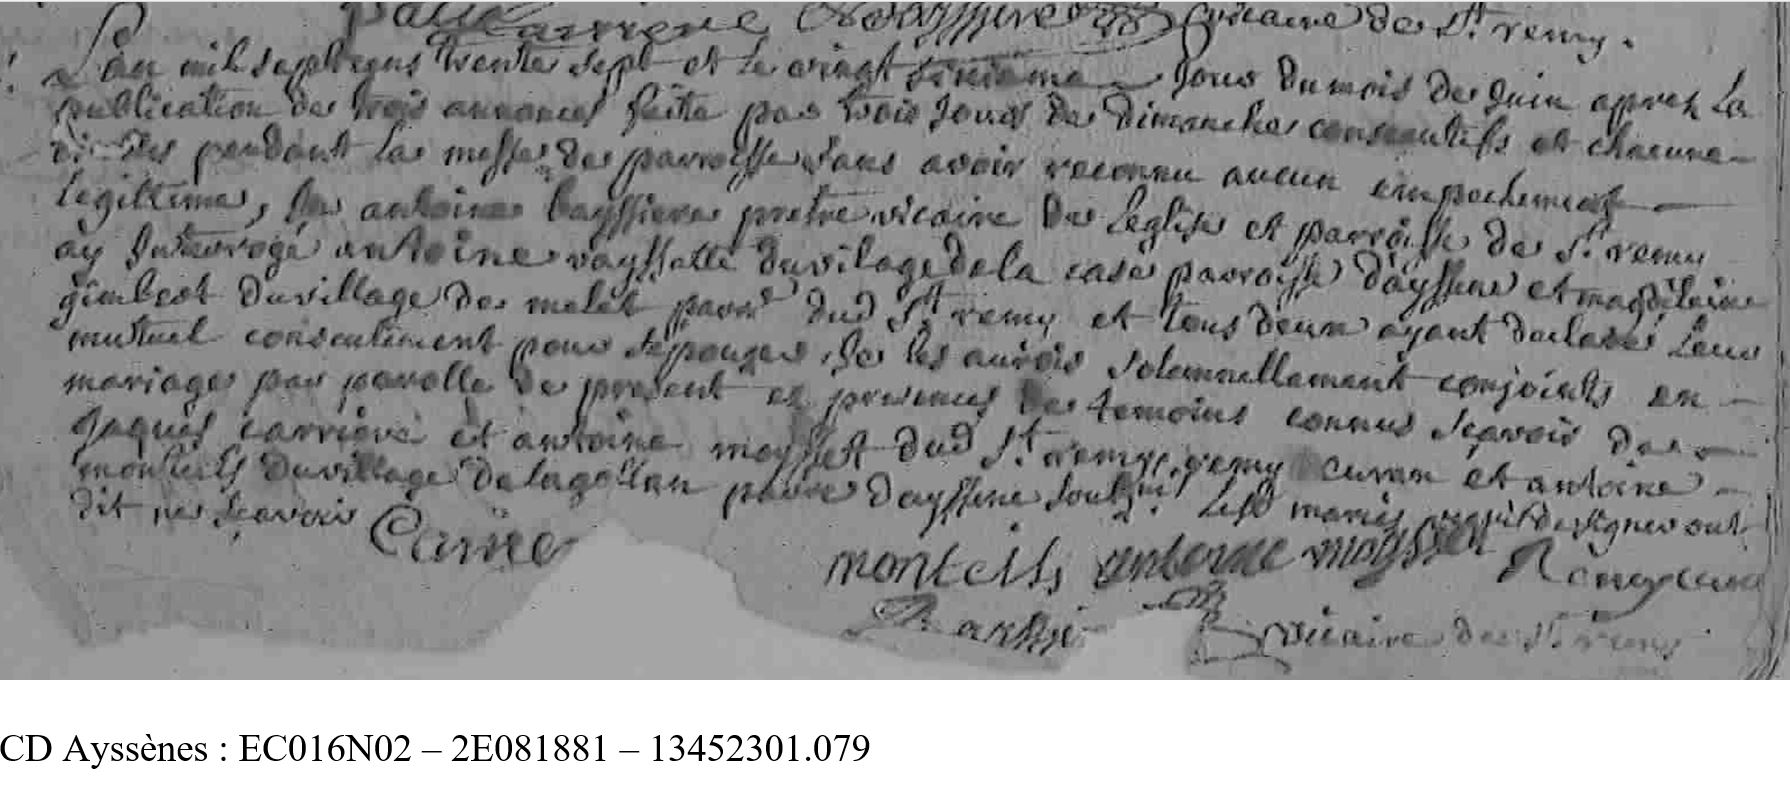 Carriere Bayssiere vicaire de St remy.
L'an mil sept cens trente sept et le vingt sixieme jour du mois de juin apres la
publication de trois annonces faite par trois jours de dimanches consecutifs et chacune
pendant la messe de parroisse sans avoir reconnu aucun empechement
legittime, je antoine bayssiere pretre vicaire de l'eglise et parroisse de St remy
ay interrogé antoine vayssette du vilage de la case parroisse d'ayssene et magdelaine
gimbert du village de melet parr dud St remy et tous deux ayant declaré leur
mutuel consentiment pour s'epouzer, je les aurois solemnellement conjoints en
mariage par parolle de present en presence des temoins connus sçavoir de
jaques carriere et antoine moysset dud St remy, remy curan et antoine
monteils du village de payre d'ayssene soubs.nes Lesd mariés requis de signer ont
dit ne sçavoir Carriere
monteils antoine moysset Remy curan
Bayssie vicaire de St remy
CD Ayssènes : EC016N02 – 2E081881 – 13452301.079